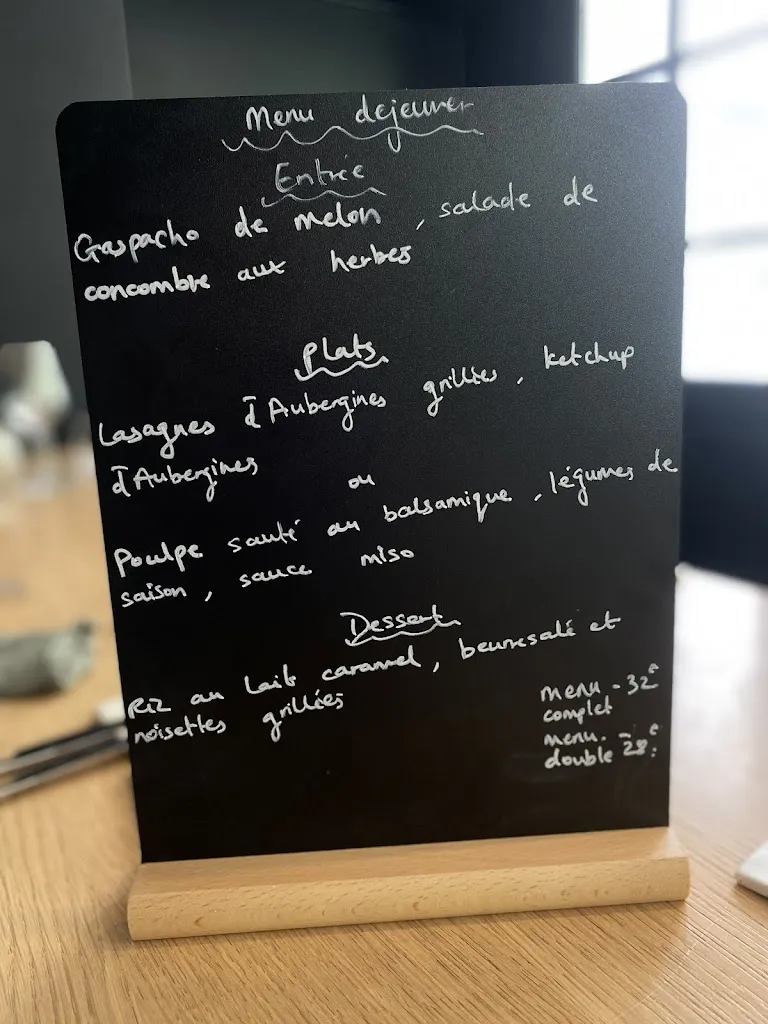 Menu dejeuner
Entrée
Gaspacho de melon , salade de
concombre aux herbes
Plats
Lasagnes d'Aubergines grillées , ketchup
d'Aubergines
ou
Poulpe sauté au balsamique , légumes de
saison , sauce miso
Dessert
Riz au lait caramel , beurresalé et
noisettes grillées
menu - 32€
complet
menu. - 28€
double